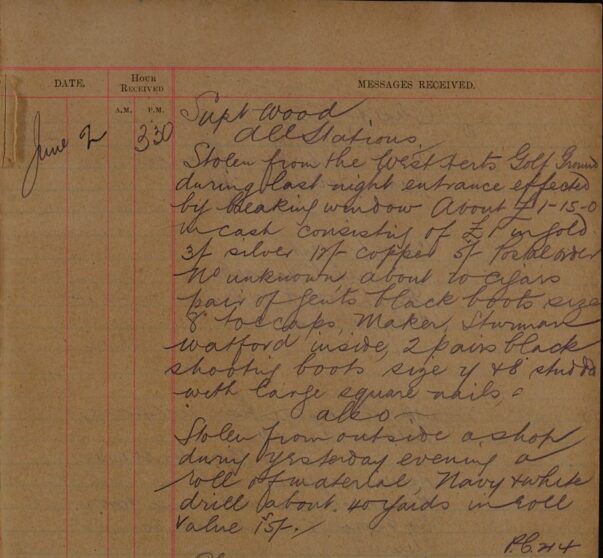 DATE. HOUR RECEIVED MESSAGES RECEIVED.
A.M. P.M.
June 2 3.30 Supt Wood
All Stations.
Stolen from the West Herts Golf Ground
during last night entrance effected
by breaking window About £1-15-0
in cash consisting of £1 in gold
3/- silver 12/- copper 5/- Postal order
No unknown, about 10 cigars
pair of Gents black boots size
8 toecaps, Maker, Sturman
Watford inside, 2 pairs black
shooting boots size 7 & 8 studded
with large square nails.
also
Stolen from outside a shop
during yesterday evening a
roll of material, Navy & white
drill about 40 yards in roll
value 15/-.
P.C. 214